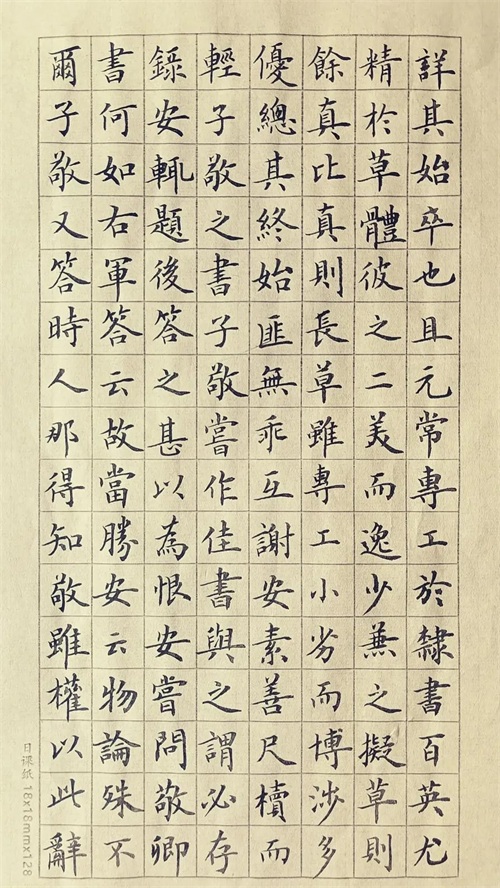 詳其始卒也且元常專工於隸書百英尤
精於草體彼之二美而逸少兼之擬草則
餘真比真則長草雖專工小劣而博涉多
優總其終始匪無乖互謝安素善尺櫝而
輕子敬之書子敬嘗作佳書與之謂必存
錄安輒題後答之甚以為恨安嘗問敬卿
書何如右軍答云故當勝安云物論殊不
爾子敬又答時人那得知敬雖權以此辭
日课纸 18x18mmx128